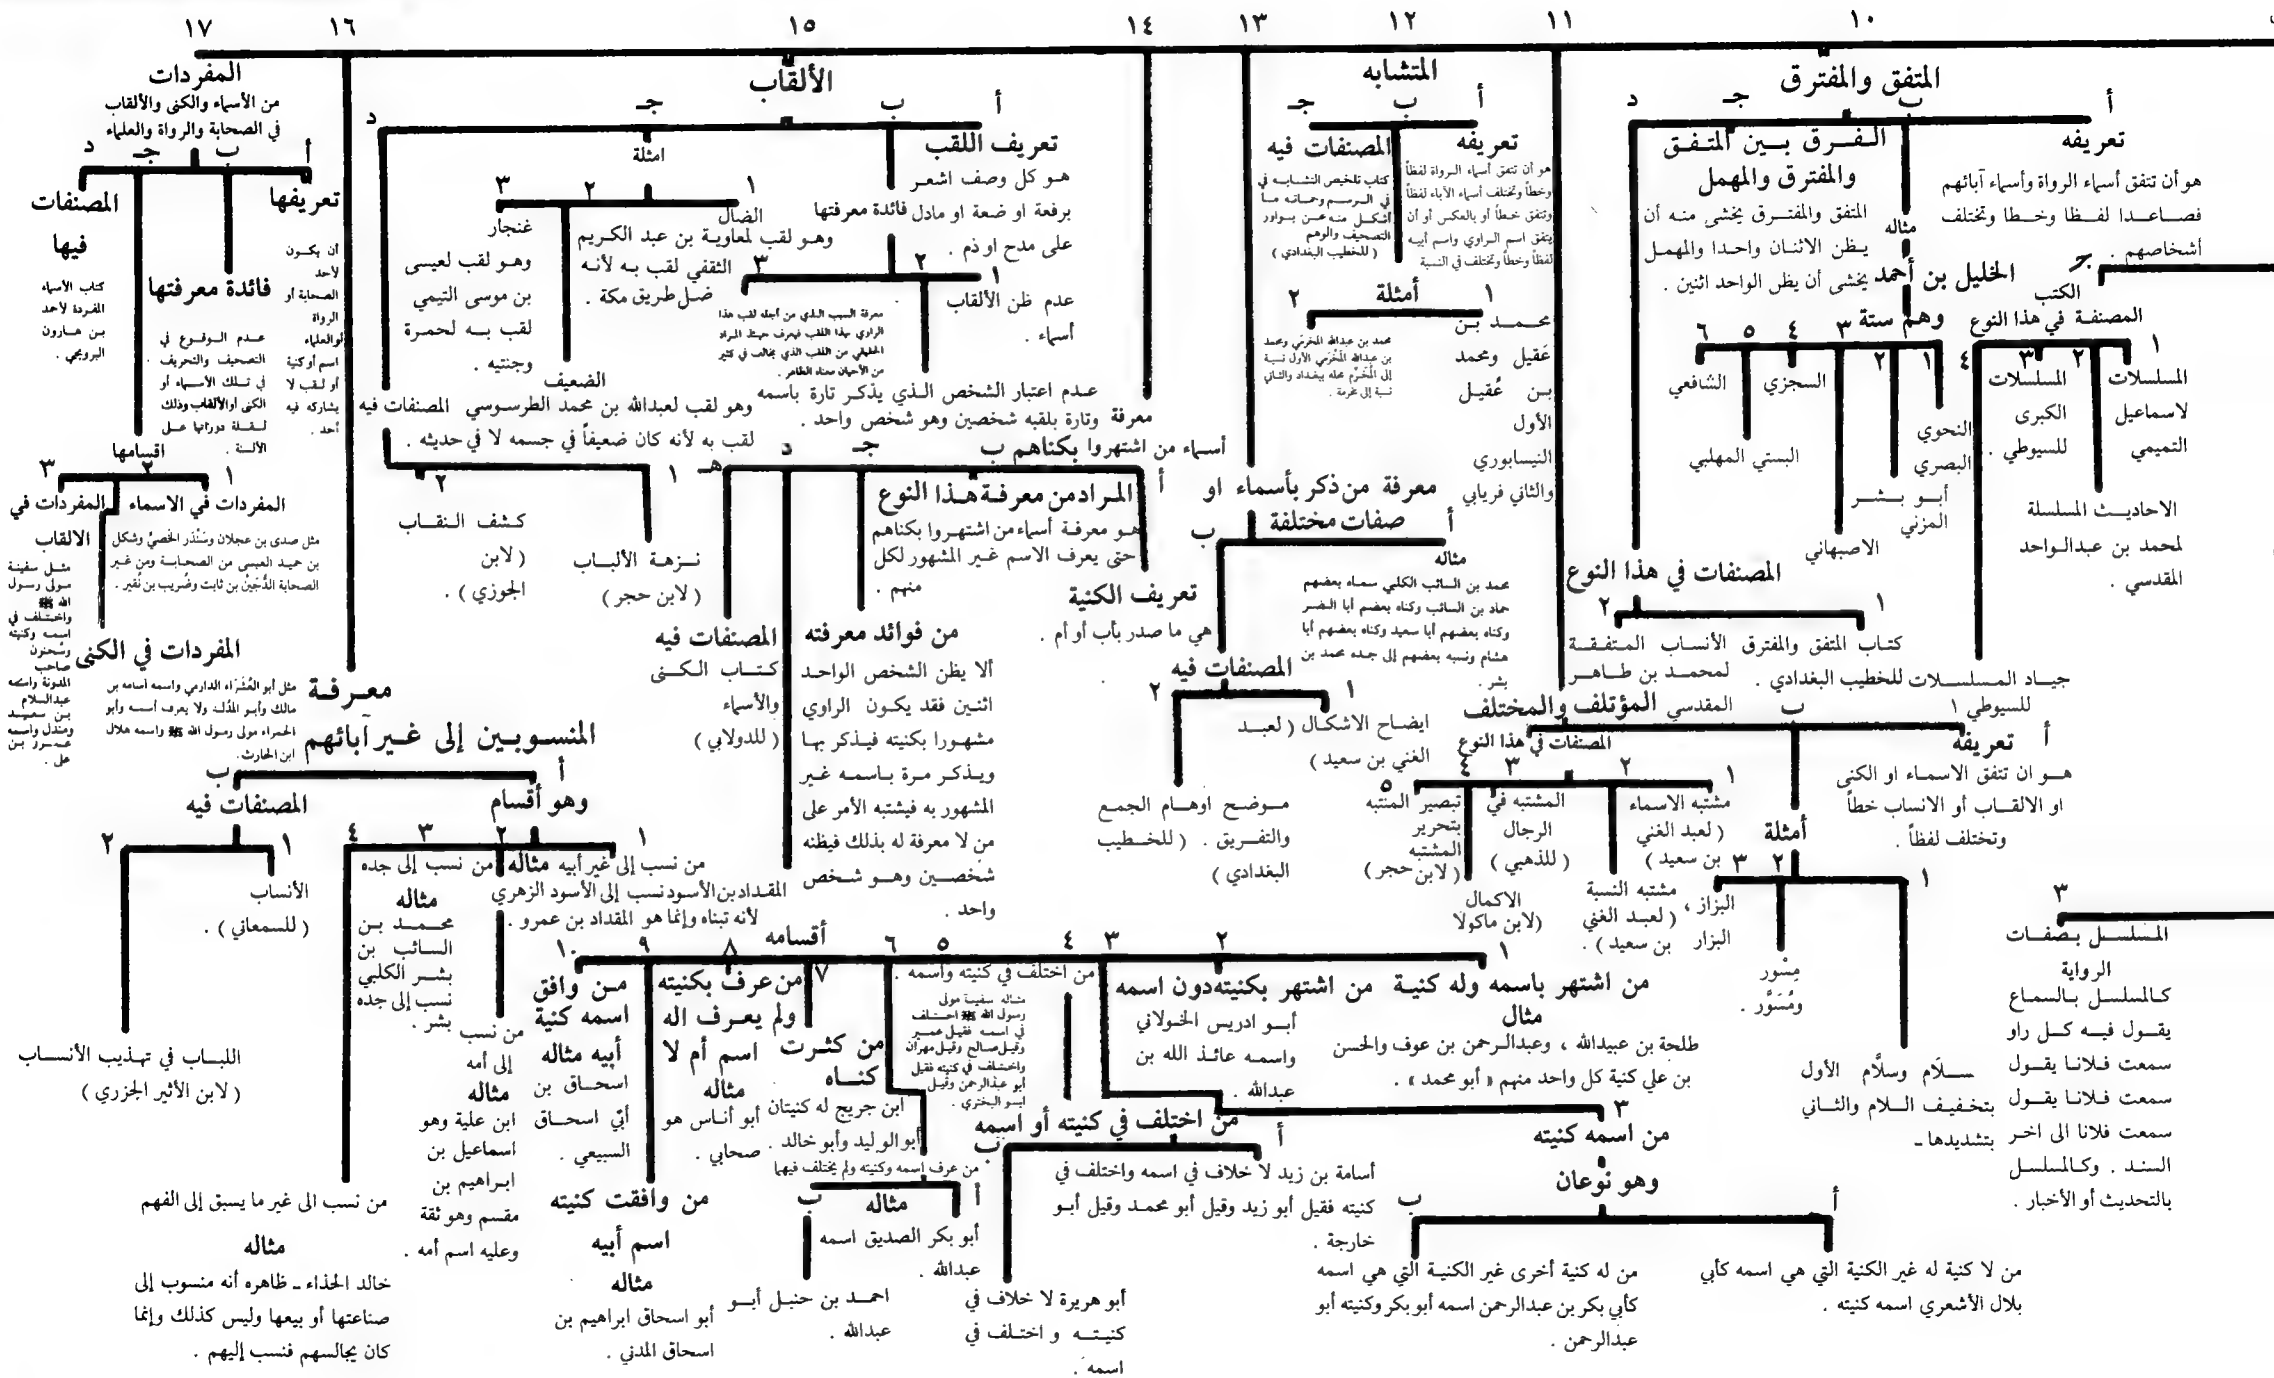 ١٠
١١
١٢
١٣
١٤
١٥
١٦
١٧
المتفق والمفترق
أ
ب
جـ
د
تعريفه
هو أن تتفق أسماء الرواة وأسماء آبائهم
فصاعدا لفظا وخطا وتختلف
أشخاصهم .
الفرق بين المتفق
والمفترق والمهمل
المتفق والمفترق يخشى منه أن
يظن الاثنان واحدا والمهمل
يخشى أن يظن الواحد اثنين .
مثاله
الخليل بن أحمد
وهم ستة
١
٢
٣
٤
٥
٦
النحوي
البصري
أبو بشر
المزني
الاصبهاني
السجزي
البستي المهلبي
الشافعي
المصنفات في هذا النوع
١
٢
كتاب المتفق والمفترق
للخطيب البغدادي .
الأنساب المتفقة
لمحمد بن طاهر
المقدسي
جـ
الكتب
المصنفة في هذا النوع
١
٢
٣
٤
المسلسلات
لاسماعيل
التميمي
الاحاديث المسلسلة
لمحمد بن عبدالواحد
المقدسي .
المسلسلات
الكبرى
للسيوطي .
جياد المسلسلات
للسيوطي ١
٣
المسلسل بصفات
الرواية
كالمسلسل بالسماع
يقول فيه كل راو
سمعت فلانا يقول
سمعت فلانا يقول
سمعت فلانا الى اخر
السند . وكالمسلسل
بالتحديث أو الأخبار .
المؤتلف والمختلف
أ
ب
تعريفه
هو ان تتفق الاسماء او الكنى
او الالقاب أو الانساب خطاً
وتختلف لفظاً .
أمثلة
١
٢
٣
سلَام وسلَّام الأول
بتخفيف السلام والثاني
بتشديدها ـ
مِسْور
ومُسَوَّر .
البزاز ،
البزار
المصنفات في هذا النوع
١
٢
٣
٤
٥
مشتبه الاسماء
( لعبد الغني
بن سعيد )
مشتبه النسبة
( لعبد الغني
بن سعيد ) .
المشتبه في
الرجال
( للذهبي )
الاكمال
(لابن ماكولا
تبصير المنتبه
بتحرير
المشتبه
( لابن حجر )
المتشابه
أ
ب
جـ
تعريفه
هو أن تتفق أسماء الرواة لفظاً
وخطاً وتختلف أسماء الآباء لفظاً
وتتفق خطاً أو بالعكس أو أن
يتفق اسم الراوي واسم أبيه
لفظاً وخطاً وتختلف في النسبة
المصنفات فيه
كتاب تلخيص التشابه في
الرسم وحمايته ما
أشكل منه عن بوادر
التصحيف والوهم
( للخطيب البغدادي )
أمثلة
١
٢
محمد بن
عَقيل ومحمد
بن عُقيل
الأول
النيسابوري
والثاني فريابي
محمد بن عبدالله المخرمي ومحمد
بن عبدالله المَخْرَمي الأول نسبة
إلى المُخَرَّم محلة ببغداد والثاني
نسبة إلى مخرمة .
معرفة من ذكر بأسماء او
صفات مختلفة
أ
ب
مثاله
محمد بن السائب الكلبي سماه بعضهم
حماد بن السائب وكناه بعضهم أبا النضر
وكناه بعضهم أبا سعيد وكناه بعضهم أبا
هشام ونسبه بعضهم إلى جده محمد بن
بشر .
المصنفات فيه
١
٢
ايضاح الاشكال ( لعبد
الغني بن سعيد )
موضح اوهام الجمع
والتفريق . ( للخطيب
البغدادي )
معرفة
أسماء من اشتهروا بكناهم
أ
ب
جـ
د
هـ
تعريف الكنية
هي ما صدر بأب أو أم .
المراد من معرفة هذا النوع
هو معرفة أسماء من اشتهروا بكناهم
حتى يعرف الاسم غير المشهور لكل
منهم .
من فوائد معرفته
ألا يظن الشخص الواحد
اثنين فقد يكون الراوي
مشهورا بكنيته فيذكر بها
ويذكر مرة باسمه غير
المشهور به فيشتبه الأمر على
من لا معرفة له بذلك فيظنه
شخصين وهو شخص
واحد .
المصنفات فيه
كتاب الكنى
والأسماء
( للدولابي )
أقسامه
١
٢
٣
٤
٥
٦
٧
٨
٩
١٠
من اشتهر باسمه وله كنية
مثال
طلحة بن عبيدالله ، وعبدالرحمن بن عوف والحسن
بن علي كنية كل واحد منهم « أبو محمد » .
من اشتهر بكنيته دون اسمه
أبو ادريس الخولاني
واسمه عائذ الله بن
عبدالله .
٣
من اسمه كنيته
وهو نوعان
أ
ب
من لا كنية له غير الكنية التي هي اسمه كأبي
بلال الأشعري اسمه كنيته .
من له كنية أخرى غير الكنية التي هي اسمه
كأبي بكر بن عبدالرحمن اسمه أبو بكر وكنيته أبو
عبدالرحمن .
من اختلف في كنيته أو اسمه
أ
ب
أسامة بن زيد لا خلاف في اسمه واختلف في
كنيته فقيل أبو زيد وقيل أبو محمد وقيل أبو
خارجة .
أبو هريرة لا خلاف في
كنيته و اختلف في
اسمه .
من اختلف في كنيته واسمه .
مثاله سفينة مولى
رسول الله ﷺ اختلف
في اسمه فقيل عمير
وقيل صالح وقيل مهران
واختلف في كنيته فقيل
أبو عبدالرحمن وقيل
ابو البختري .
من عرف اسمه وكنيته ولم يختلف فيهما
أ
ب
مثاله
أبو بكر الصديق اسمه
عبدالله .
احمد بن حنبل أبو
عبدالله .
من كثرت
كناه
ابن جريج له كنيتان
أبو الوليد وأبو خالد .
من عرف بكنيته
ولم يعرف اله
اسم أم لا
مثاله
أبو أناس هو
صحابي .
من وافقت كنيته
اسم أبيه
مثاله
أبو اسحاق ابراهيم بن
اسحاق المدني .
من وافق
اسمه كنية
أبيه مثاله
اسحاق بن
أبي اسحاق
السبيعي .
الألقاب
أ
ب
جـ
د
تعريف اللقب
هو كل وصف اشعر
برفعة او ضعة او مادل
على مدح او ذم .
فائدة معرفتها
١
٢
٣
عدم ظن الألقاب
أسماء .
عدم اعتبار الشخص الذي يذكر تارة باسمه
وتارة بلقبه شخصين وهو شخص واحد .
معرفة السبب الذي من أجله لقب هذا
الراوي بهذا اللقب فيعرف حينئذ المراد
الحقيقي من اللقب الذي يخالف في كثير
من الأحيان معناه الظاهر .
امثلة
١
٢
٣
الضال
وهو لقب لمعاوية بن عبد الكريم
الثقفي لقب به لأنه
ضل طريق مكة .
الضعيف
وهو لقب لعبدالله بن محمد الطرسوسي
لقب به لأنه كان ضعيفاً في جسمه لا في حديثه .
غنجار
وهو لقب لعيسى
بن موسى التيمي
لقب به لحمرة
وجنتيه .
المصنفات فيه
١
٢
نزهة الألباب
( لابن حجر )
كشف النقاب
( لابن
الجوزي ) .
معرفة
المنسوبين إلى غير آبائهم
أ
ب
وهو أقسام
١
٢
٣
٤
من نسب إلى غير أبيه مثاله
المقداد بن الأسود نسب إلى الأسود الزهري
لأنه تبناه وإنما هو المقداد بن عمرو .
من نسب
إلى أمه
مثاله
ابن علية وهو
اسماعيل بن
ابراهيم بن
مقسم وهو ثقة
وعليه اسم أمه .
من نسب إلى جده
مثاله
محمد بن
السائب بن
بشر الكلبي
نسب إلى جده
بشر .
من نسب الى غير ما يسبق إلى الفهم
مثاله
خالد الحذاء ـ ظاهره أنه منسوب إلى
صناعتها أو بيعها وليس كذلك وإنما
كان يجالسهم فنسب إليهم .
المصنفات فيه
١
٢
الأنساب
( للسمعاني ) .
اللباب في تهذيب الأنساب
( لابن الأثير الجزري )
المفردات
من الأسماء والكنى والألقاب
في الصحابة والرواة والعلماء
أ
ب
جـ
د
تعريفها
أن يكون
لأحد
الصحابة أو
الرواة
أو العلماء
اسم أو كنية
أو لقب لا
يشاركه فيه
أحد .
فائدة معرفتها
عدم الوقوع في
التصحيف والتحريف
في تلك الأسماء أو
الكنى أو الألقاب وذلك
لقلة دورانها على
الألسنة .
اقسامها
١
٢
٣
المفردات في الاسماء
مثل صدى بن عجلان وسَنْدَر الخصيُّ وشكل
بن حميد العبسي من الصحابة ومن غير
الصحابة الدُّجَيْن بن ثابت وضُريب بن نُقير .
المفردات في الكنى
مثل أبو العُشَراء الدارمي واسمه أسامه بن
مالك وأبو المُدلَّه ولا يعرف اسمه وأبو
الحمراء مولى رسول الله ﷺ واسمه هلال
ابن الحارث .
المفردات في
الالقاب
مثل سفينة
مولى رسول
الله ﷺ
واختلف في
اسمه وكنيته
وسحنون
صاحب
المدونة واسمه
عبدالسلام
بن سعيد
ومندل واسمه
عمرو بن
علي .
المصنفات
فيها
كتاب الأسماء
المفردة لأحمد
بن هارون
البرديجي .